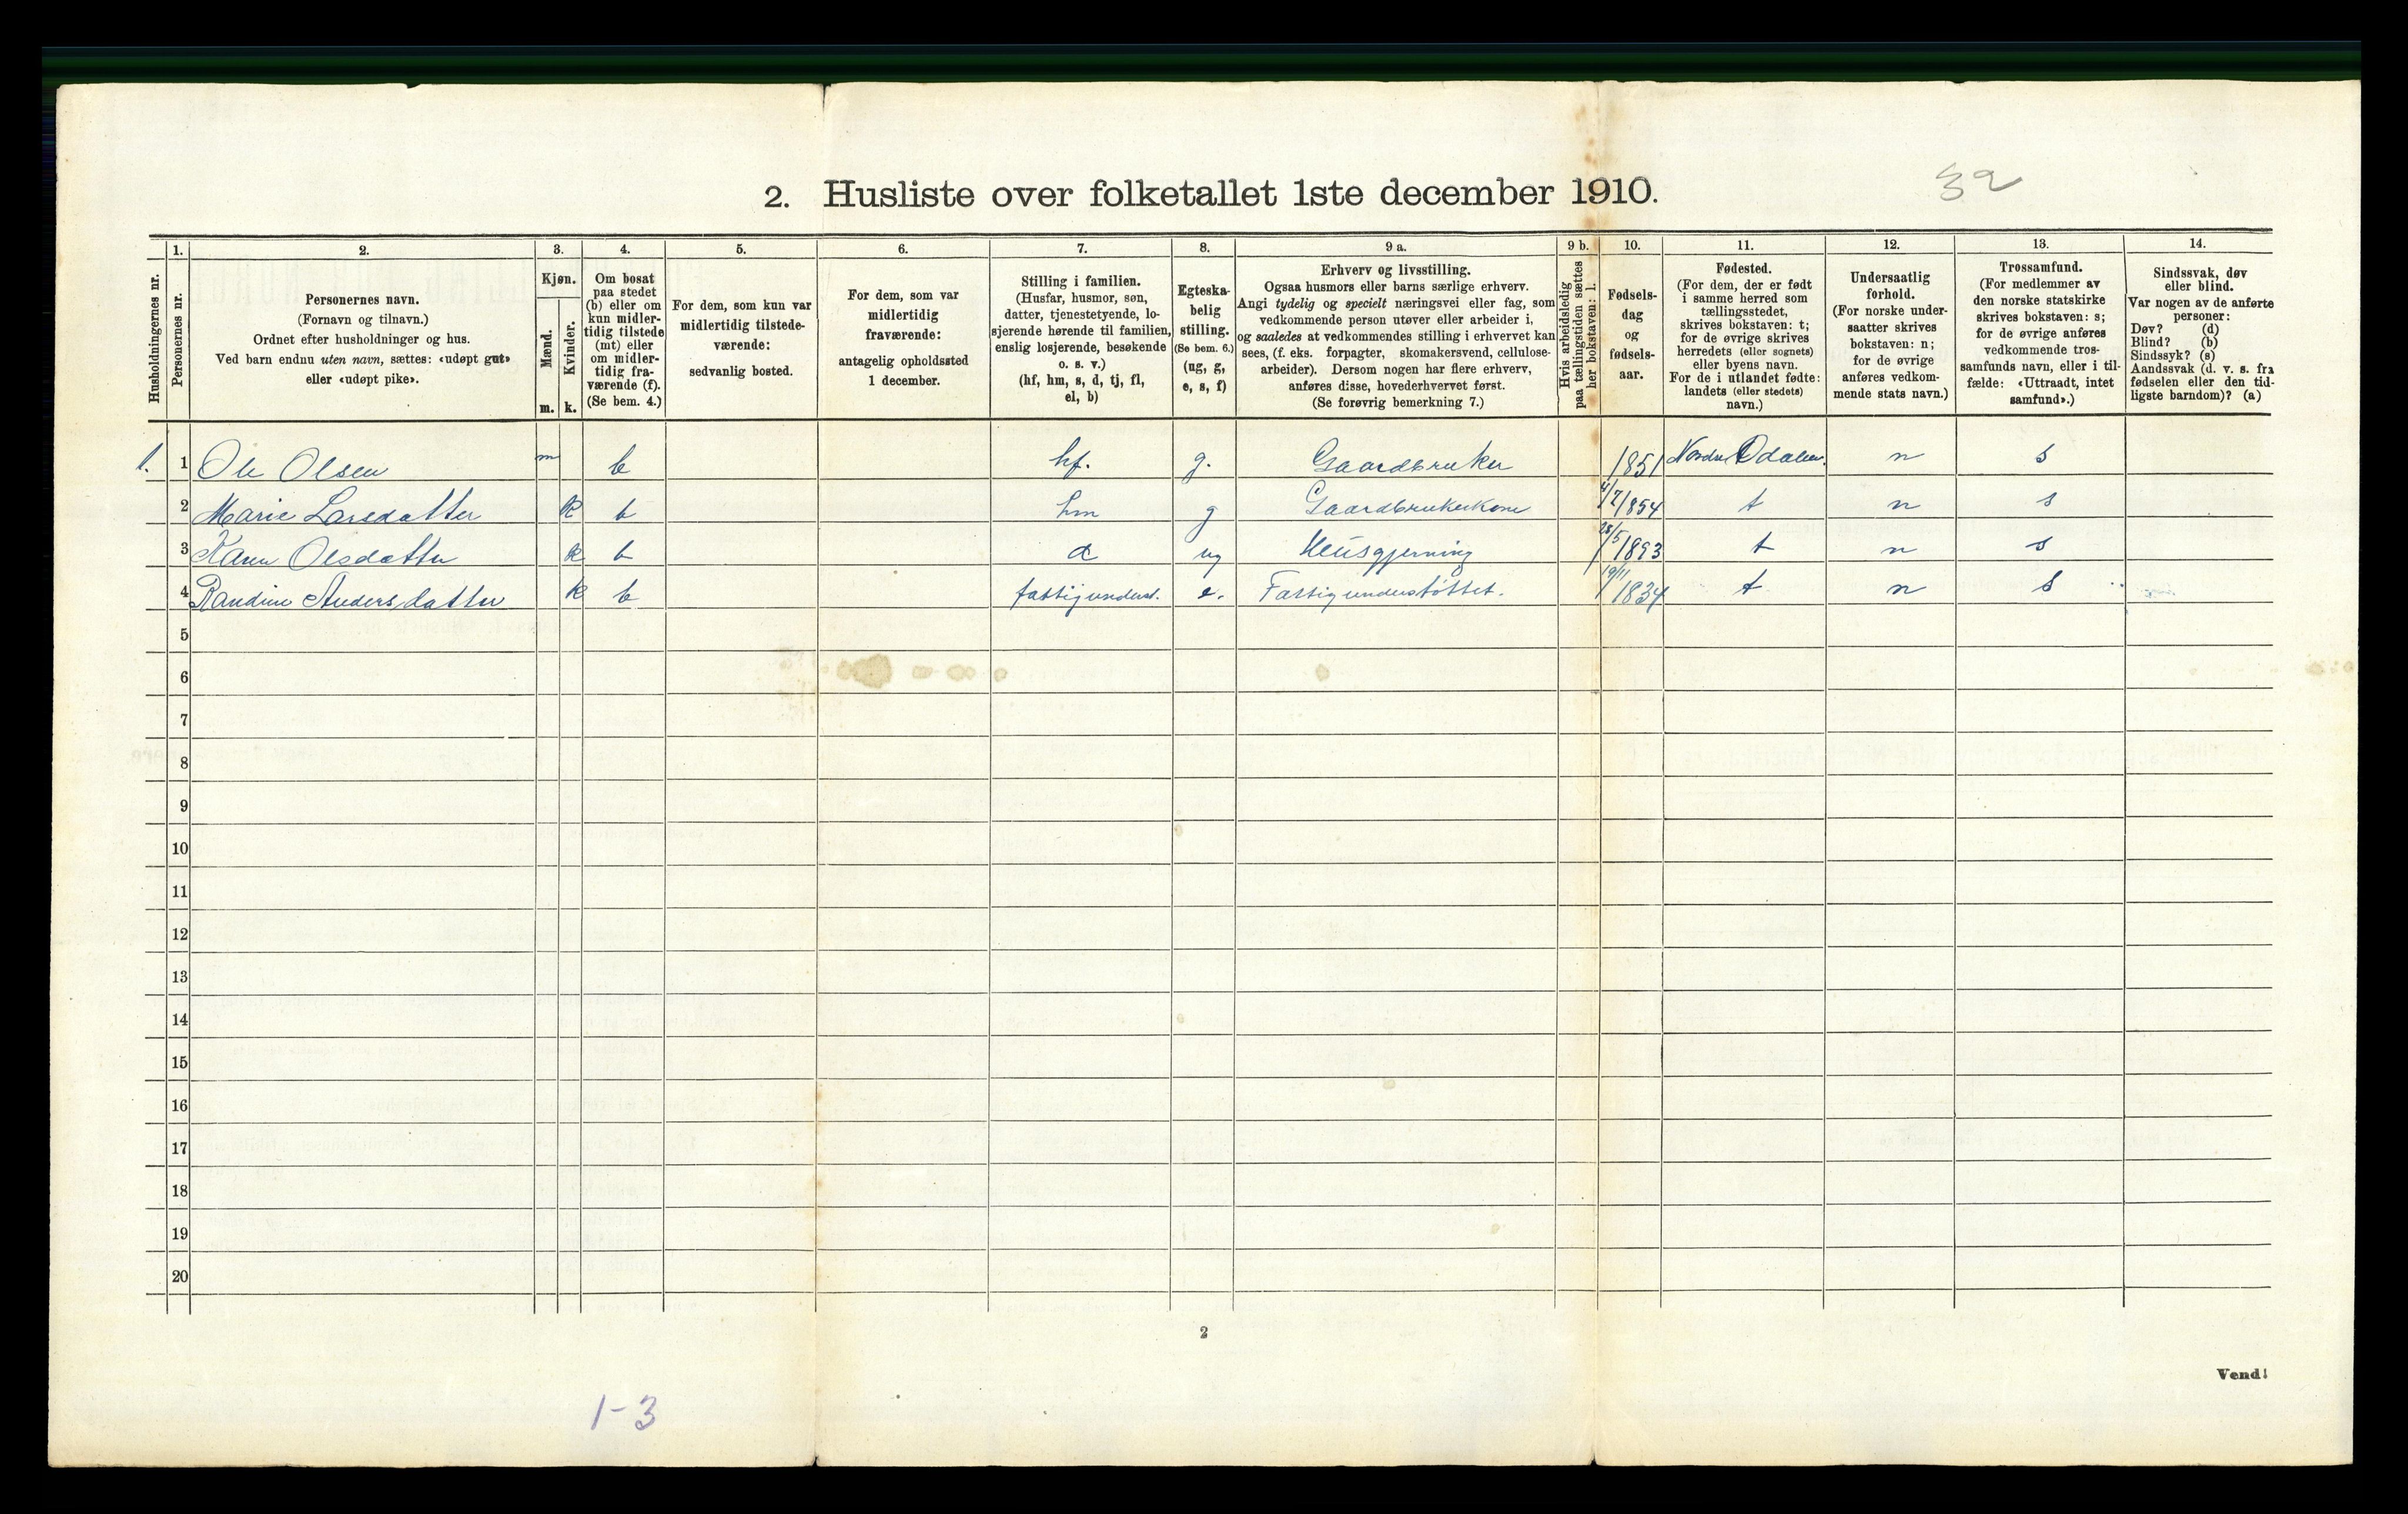 32
2. Husliste over folketallet 1ste december 1910.
Husholdningernes nr.
1.
Personernes nr.
2.
Personernes navn.
(Fornavn og tilnavn.)
Ordnet efter husholdninger og hus.
Ved barn endnu uten navn, sættes: «udøpt gut»
eller «udøpt pike».
3.
Kjøn.
Mænd.
Kvinder.
m. k.
4.
Om bosat
paa stedet
(b) eller om
kun midler-
tidig tilstede
(mt) eller
om midler-
tidig fra-
værende (f).
(Se bem. 4.)
5.
For dem, som kun var
midlertidig tilstede-
værende:
sedvanlig bosted.
6.
For dem, som var
midlertidig
fraværende:
antagelig opholdssted
1 december.
7.
Stilling i familien.
(Husfar, husmor, søn,
datter, tjenestetyende, lo-
sjerende hørende til familien,
enslig losjerende, besøkende
o. s. v.)
(hf, hm, s, d, tj, fl,
el, b)
8.
Egteska-
belig
stilling.
(Se bem. 6.)
(ug, g,
e, s, f)
9 a.
Erhverv og livsstilling.
Ogsaa husmors eller barns særlige erhverv.
Angi tydelig og specielt næringsvei eller fag, som
vedkommende person utøver eller arbeider i,
og saaledes at vedkommendes stilling i erhvervet kan
sees, (f. eks. forpagter, skomakersvend, cellulose-
arbeider). Dersom nogen har flere erhverv,
anføres disse, hovederhvervet først.
(Se forøvrig bemerkning 7.)
9 b.
Hvis arbeidsledig
paa tællingstiden sættes
her bokstaven: l.
10.
Fødsels-
dag
og
fødsels-
aar.
11.
Fødested.
(For dem, der er født
i samme herred som
tællingsstedet,
skrives bokstaven: t;
for de øvrige skrives
herredets (eller sognets)
eller byens navn.
For de i utlandet fødte:
landets (eller stedets)
navn.)
12.
Undersaatlig
forhold.
(For norske under-
saatter skrives
bokstaven: n;
for de øvrige
anføres vedkom-
mende stats navn.)
13.
Trossamfund.
(For medlemmer av
den norske statskirke
skrives bokstaven: s;
for de øvrige anføres
vedkommende tros-
samfunds navn, eller i til-
fælde: «Uttraadt, intet
samfund».)
14.
Sindssvak, døv
eller blind.
Var nogen av de anførte
personer:
Døv? (d)
Blind? (b)
Sindssyk? (s)
Aandssvak (d. v. s. fra
fødselen eller den tid-
ligste barndom)? (a)
1. 1 Ole Olsen m b hf. g. Gaardbruker 1851 Nordre Odalen. n s
2 Marie Larsdatter k b hm g Gaardbrukerkone 4/7 1854 t n s
3 Karen Olsdatter k b d ug Husgjerning 28/5 1893 t n s
4 Randine Andersdatter k b fattigunderst. e. Fattigunderstøttet. 19/11 1834 t n s
5
6
7
8
9
10
11
12
13
14
15
16
17
18
19
20
2
Vend!
1-3